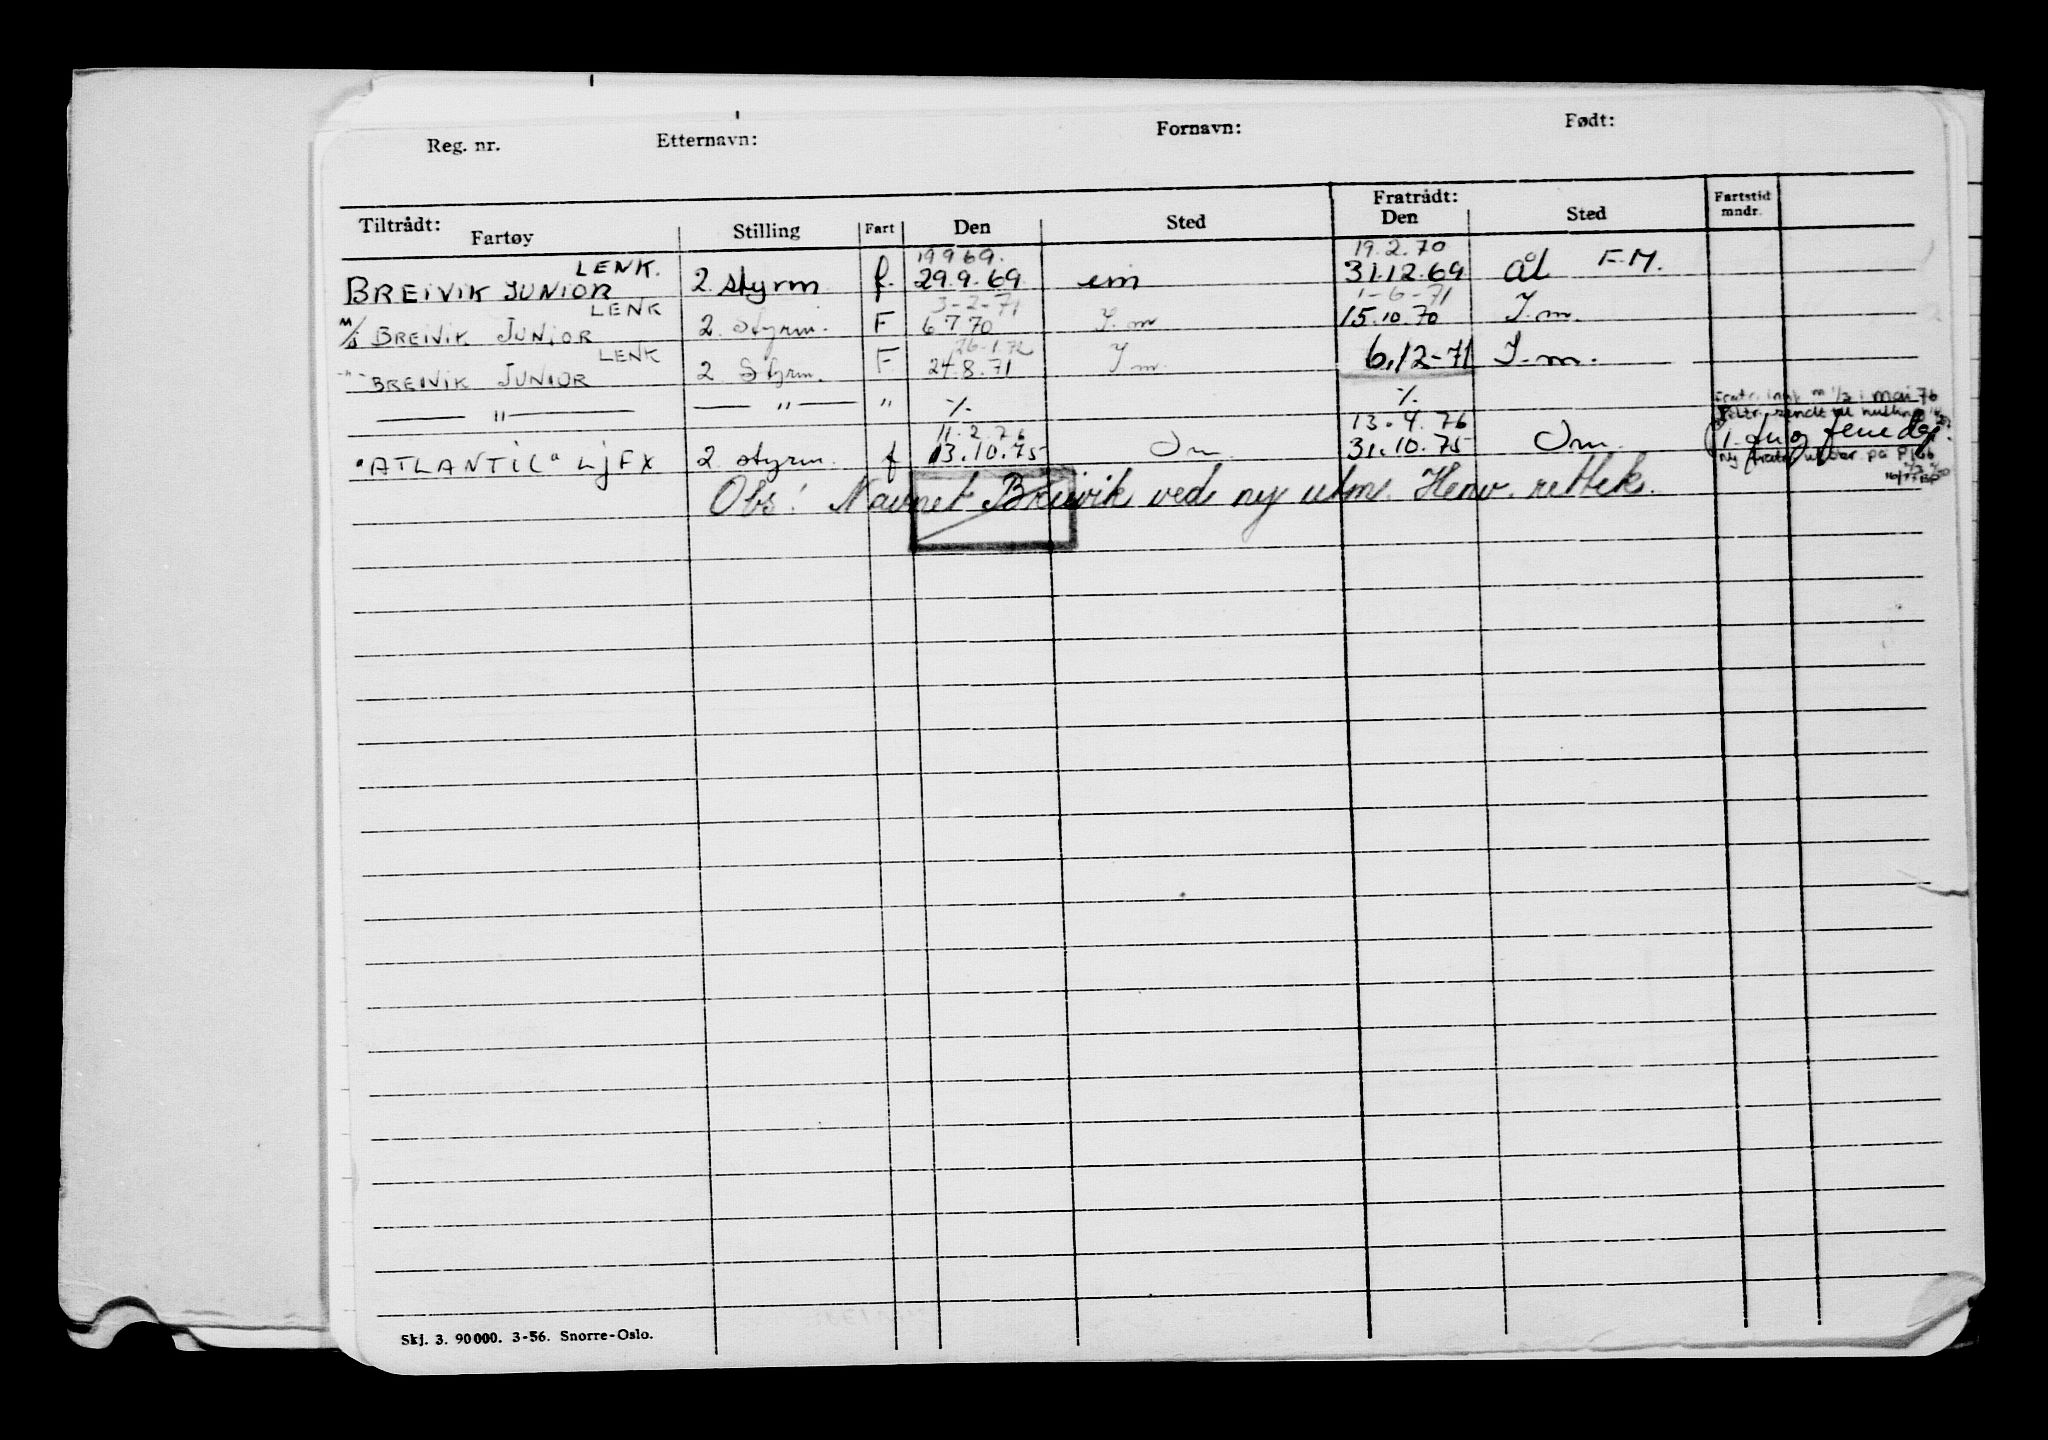 Reg. nr. Etternavn: Fornavn: Født:
Tiltrådt: Fratrådt:
Fartøy Stilling Fart Den Sted Den Sted Fartstid mndr.
LENK. 19 9 69. 19.2.70
BREIVIK JUNIOR 2 styrm f. 29.9.69 31.12.69 ål F.M.
LENK 3-2-71 1-6-71
M/S BREIVIK JUNIOR 2. Styrm. F 6 7 70 I.m 15.10.70 I.m.
LENK 26-1.72
-"- BREIVIK JUNIOR 2 Styrm. F 24.8.71 I m. 6.12-71 I.m.
— " — — " — " ·/. ·/. mai 76
11.2.76 13.4.76
"ATLANTIC" LJFX 2 styrm. f 13.10.75 Om 31.10.75 Om.
Obs! Navnet Breivik ved ny utm. Henv. rettek.
Skj. 3. 90000. 3-56. Snorre-Oslo.